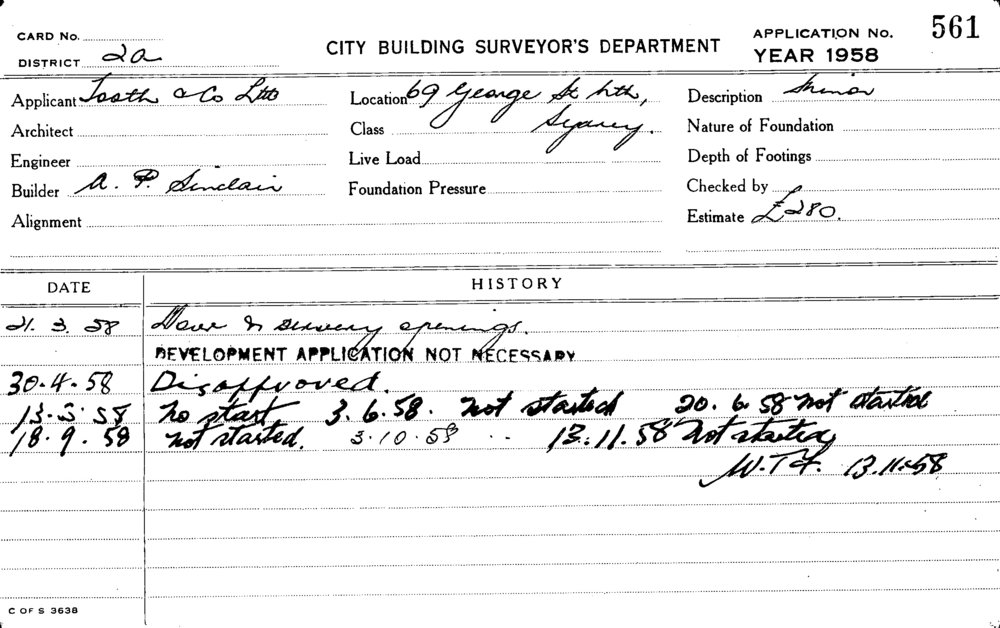 CARD No.
DISTRICT 2a
CITY BUILDING SURVEYOR'S DEPARTMENT
APPLICATION No. 561
YEAR 1958
Applicant Tooth & Co Ltd
Location 69 George St Nth,
Sydney.
Description Minor
Architect
Class
Nature of Foundation
Engineer
Live Load
Depth of Footings
Builder A. P. Sinclair
Foundation Pressure
Checked by
Alignment
Estimate £280.
DATE HISTORY
21. 3. 58 Door & servery openings.
DEVELOPMENT APPLICATION NOT NECESSARY
30.4.58 Disapproved.
13.5.58 No start 3.6.58. Not started 20.6.58 Not started
18.9.58 Not started. 3.10.58 .. 13.11.58 Not started
W.T.F. 13.11.58
C OF S 3638